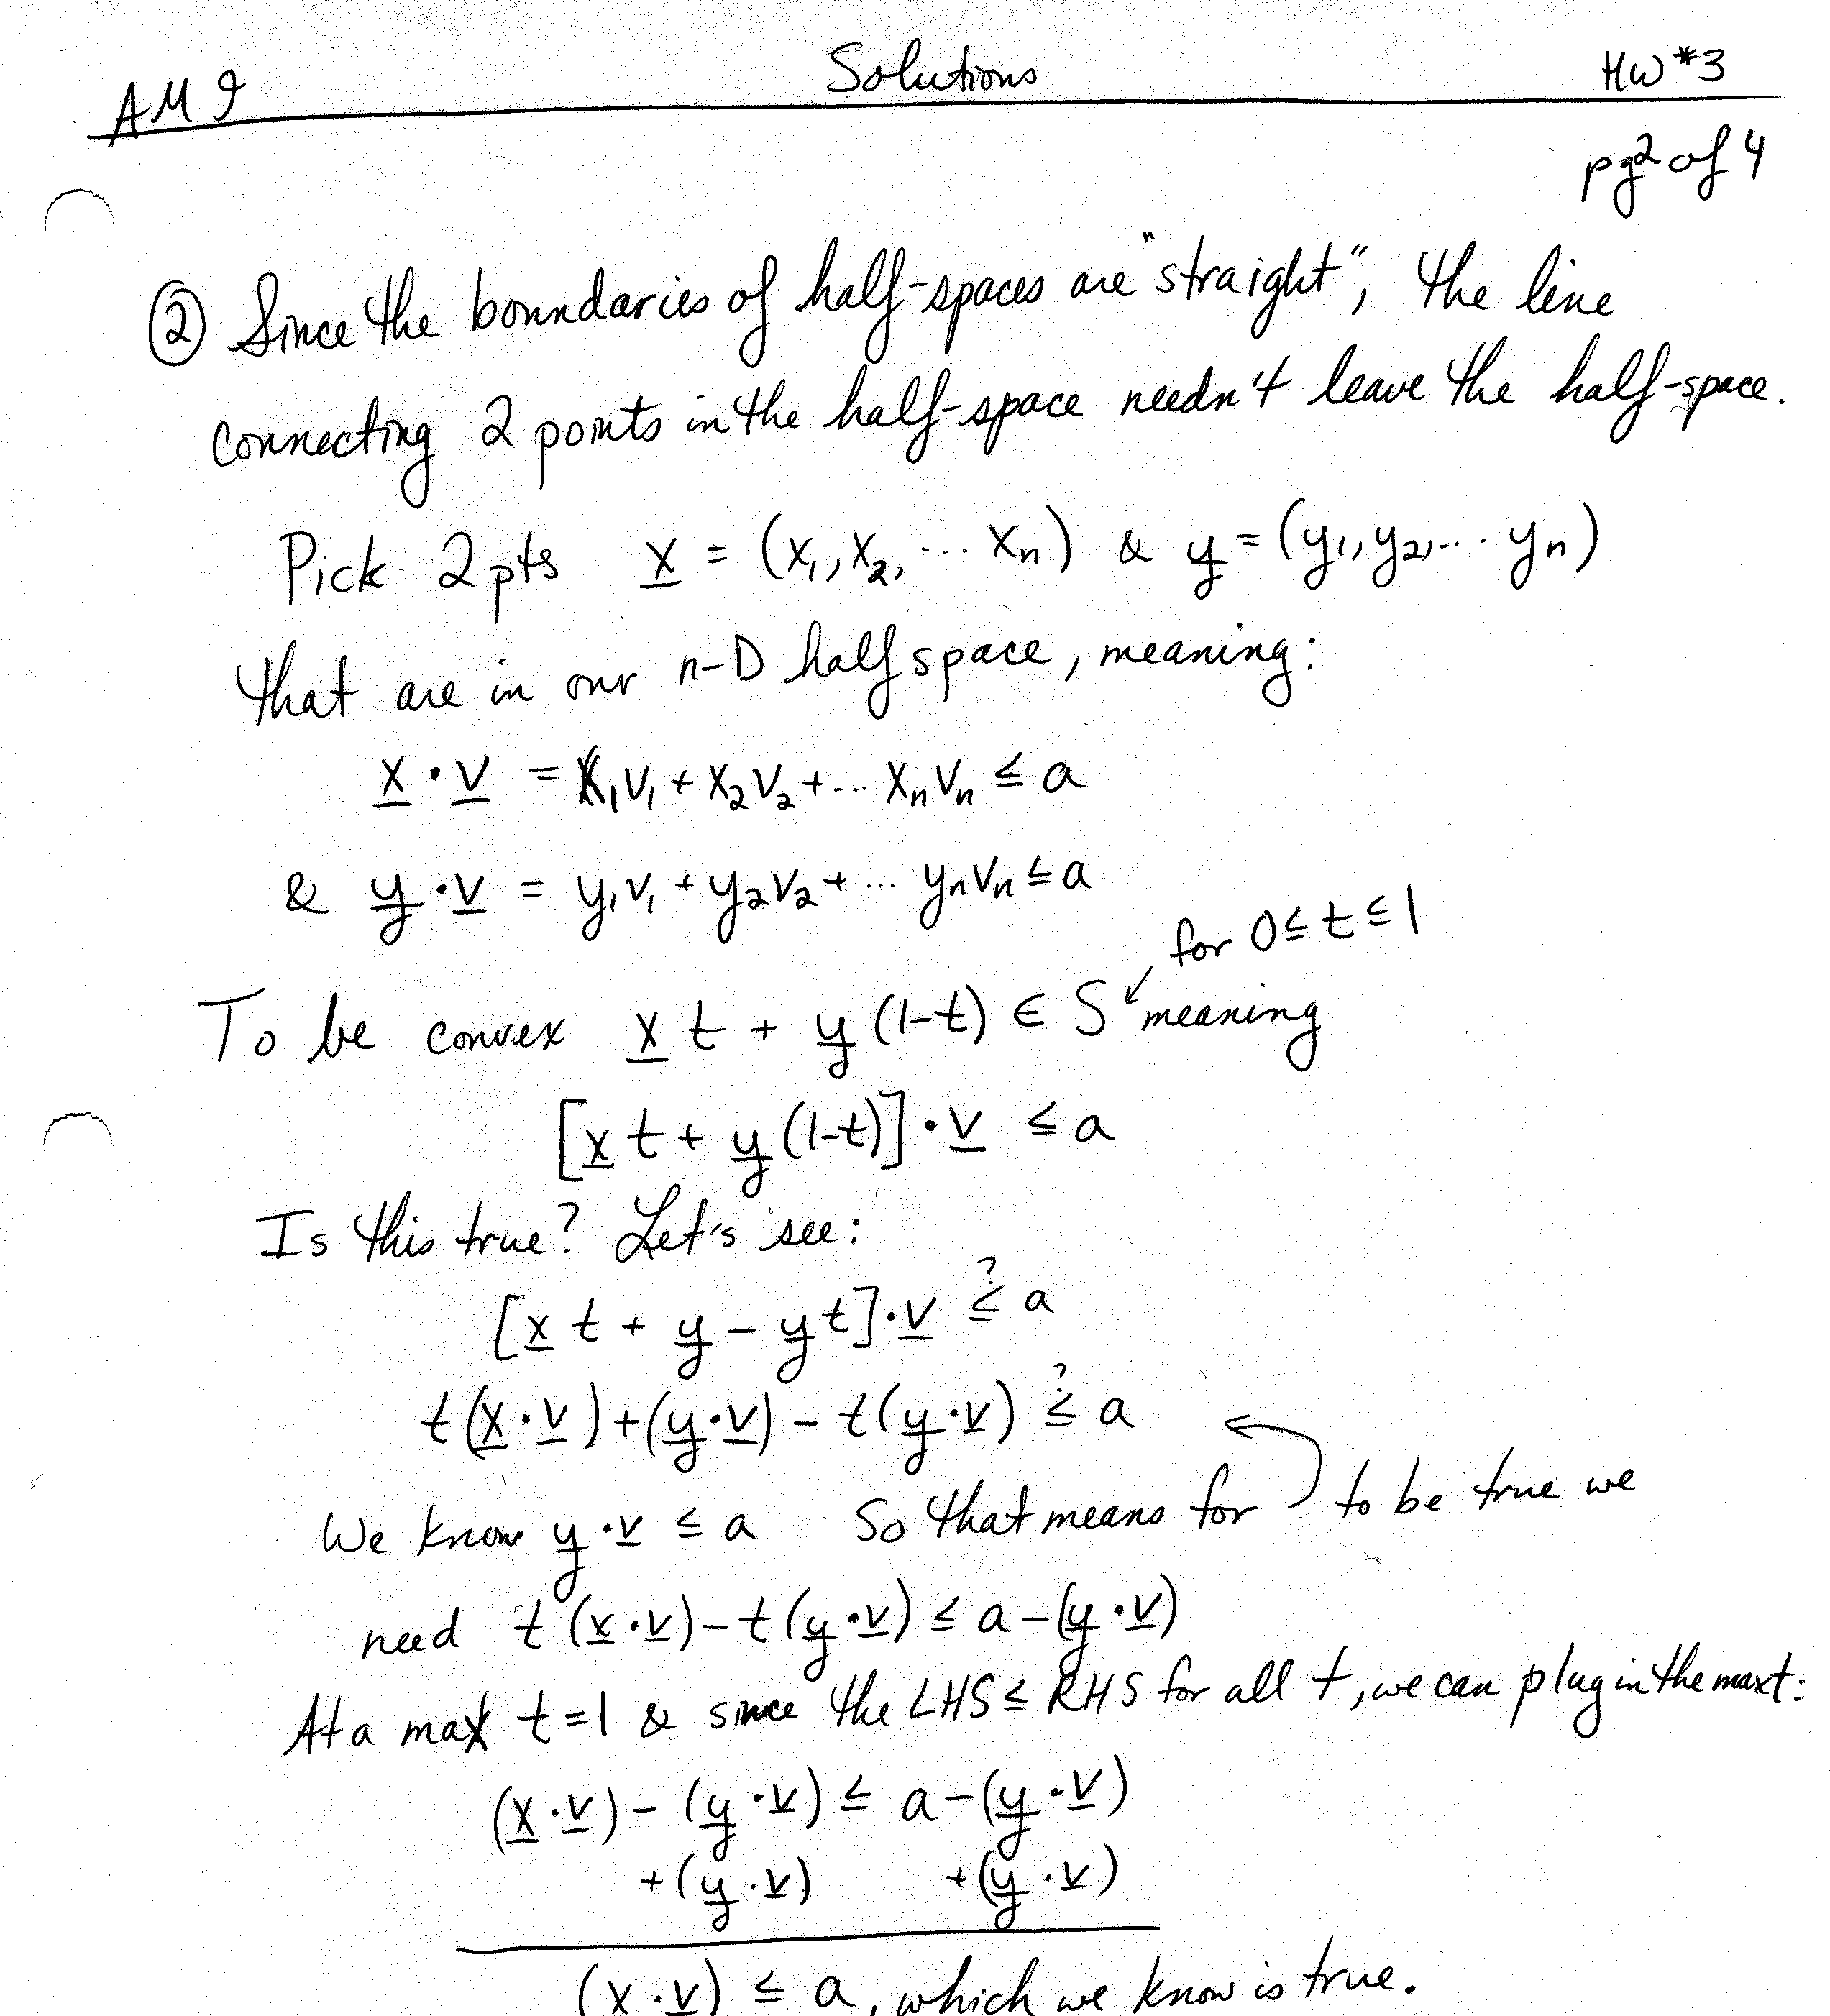 AM 9 Solutions HW #3
pg 2 of 4
② Since the boundaries of half-spaces are "straight", the line
connecting 2 points in the half-space needn't leave the half-space.
Pick 2 pts x = (x₁, x₂, ... xₙ) & y = (y₁, y₂, ... yₙ)
that are in our n-D half space, meaning:
x · v = x₁v₁ + x₂v₂ + ... xₙvₙ ≤ a
& y · v = y₁v₁ + y₂v₂ + ... yₙvₙ ≤ a
for 0 ≤ t ≤ 1
To be convex x t + y (1-t) ∈ S meaning
[x t + y (1-t)] · v ≤ a
Is this true? Let's see:
[x t + y - y t] · v ≤? a
t(x · v) + (y · v) - t(y · v) ≤? a
We know y · v ≤ a So that means for to be true we
need t (x · v) - t (y · v) ≤ a - (y · v)
At a max t = 1 & since the LHS ≤ RHS for all t, we can plug in the max t:
(x · v) - (y · v) ≤ a - (y · v)
+ (y · v) + (y · v)
(x · v) ≤ a, which we know is true.